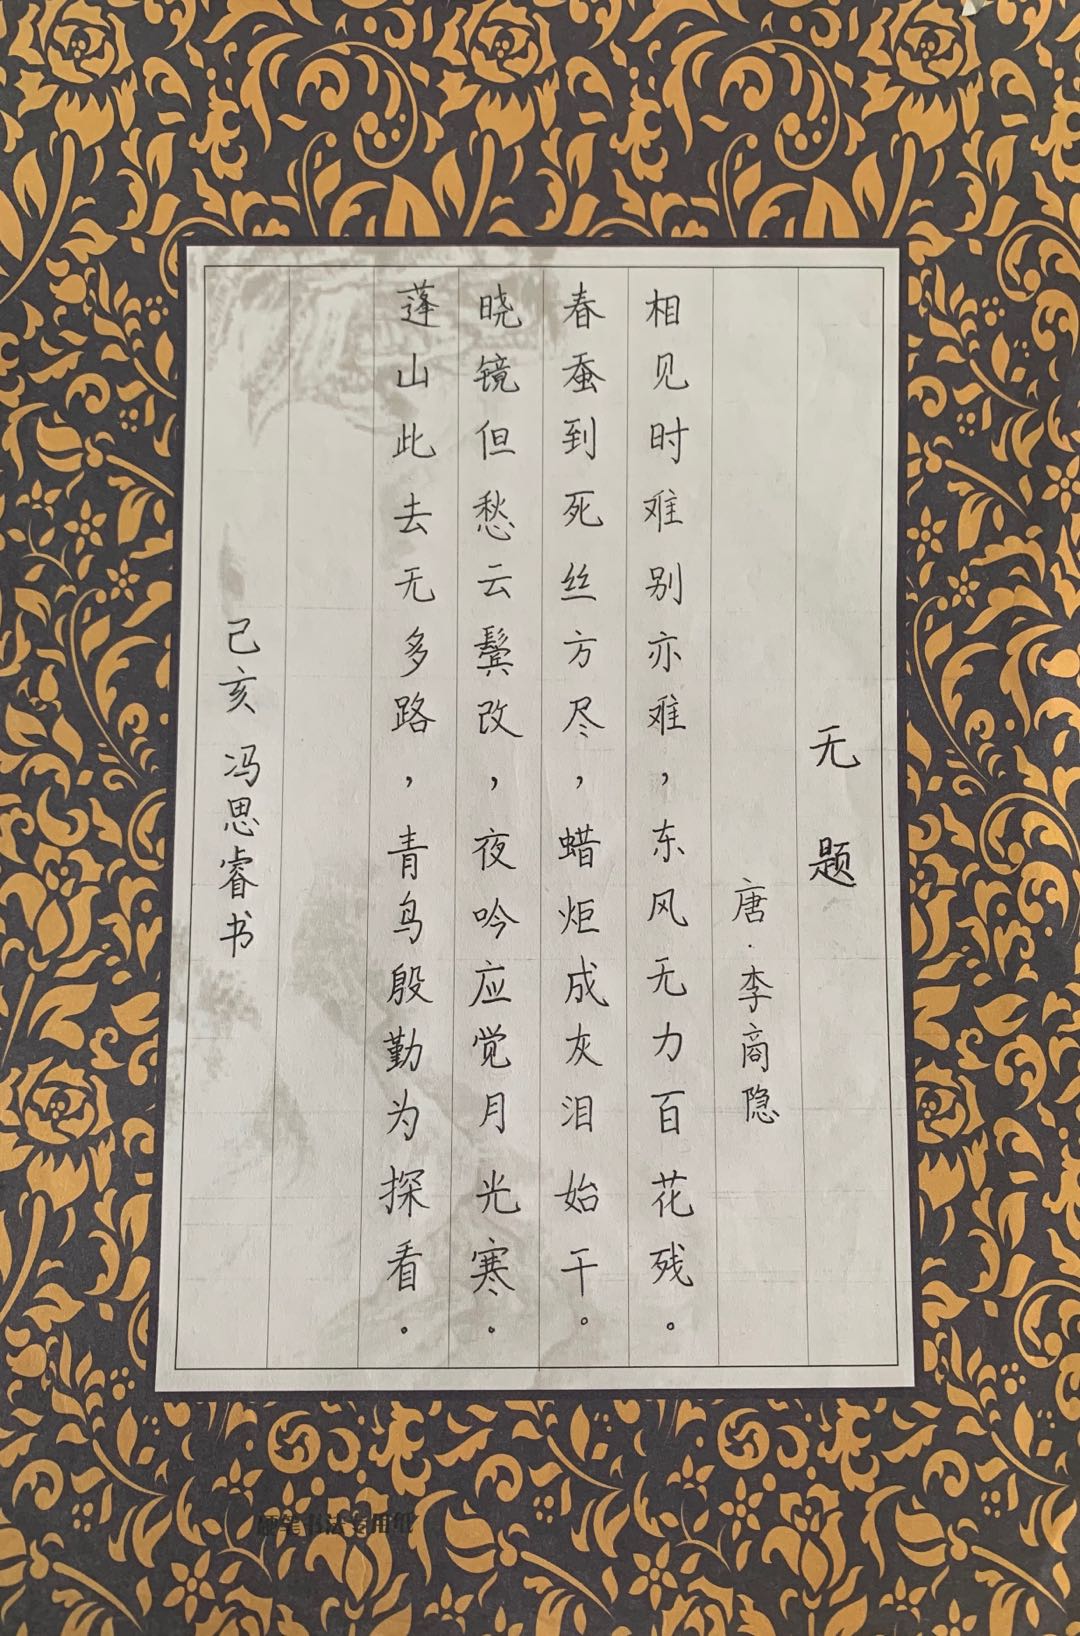 无题
唐·李商隐
相见时难别亦难，东风无力百花残。
春蚕到死丝方尽，蜡炬成灰泪始干。
晓镜但愁云鬓改，夜吟应觉月光寒。
蓬山此去无多路，青鸟殷勤为探看。
己亥 冯思睿书
硬笔书法专用纸